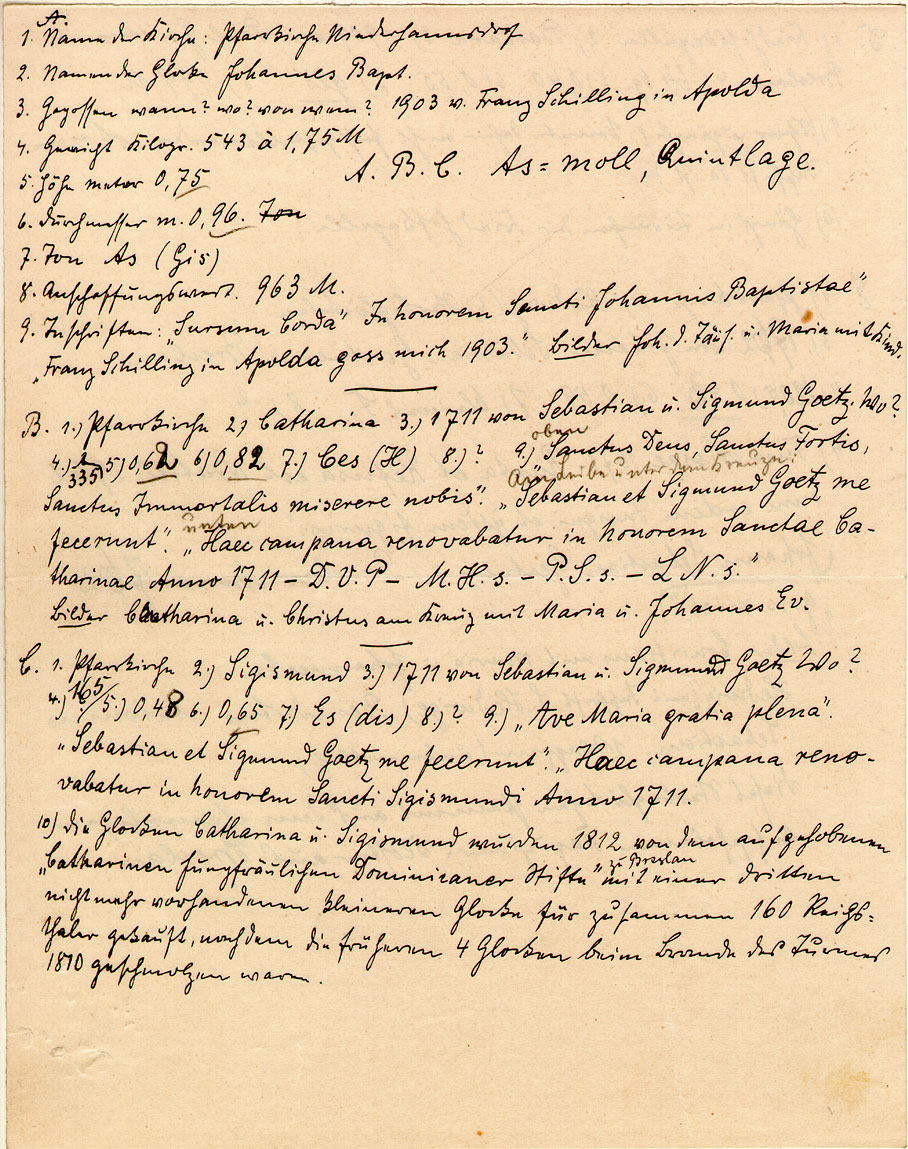 A.
1. Name der Kirche: Pfarrkirche Niederhannsdorf
2. Namen der Glocke Johannes Bapt.
3. Gegossen wann? wo? von wem? 1903 v. Franz Schilling in Apolda
4. Gewicht Kilogr. 543 à 1,75 M
A. B. C. As=moll, Quintlage.
5. Höhe meter 0,75
6. Durchmesser m. 0,96. Ton
7. Ton As (Gis)
8. Anschaffungswert. 963 M.
9. Inschriften: „Sursum Corda" In honorem Sancti Johannis Baptistae"
„Franz Schilling in Apolda goss mich 1903." Bilder Joh. d. Täuf. u. Maria mit Kind.
B. 1.) Pfarrkirche 2.) Catharina 3.) 1711 von Sebastian u. Sigmund Goetz. Wo?
oben
4.) 335 5) 0,62 6) 0,82 7.) Ces (H) 8.) ? 9.) „Sanctus Deus, Sanctus Fortis,
Am Leibe unter dem Kreuze:
Sanctus Immortalis miserere nobis". „Sebastian et Sigmund Goetz me
unten
fecerunt". „Haec campana renovabatur in honorem Sanctae Ca-
tharinae Anno 1711 – D. V. P – M. H. s. – P. S. s. – L N. s."
Bilder Catharina u. Christus am Kreuz mit Maria u. Johannes Ev.
C. 1. Pfarrkirche 2.) Sigismund 3.) 1711 von Sebastian u. Sigmund Goetz Wo?
4.) 165 5.) 0,48 6.) 0,65 7.) Es (dis) 8.) ? 9.) „Ave Maria gratia plena".
„Sebastian et Sigmund Goetz me fecerunt". „Haec campana reno-
vabatur in honorem Sancti Sigismundi Anno 1711.
10) Die Glocken Catharina u. Sigismund wurden 1812 von dem aufgehobenen
„Catharinen Jungfräulichen Dominicaner Stifte" zu Breslau mit einer dritten
nicht mehr vorhandenen kleineren Glocke für zusammen 160 Reichs=
thaler gekauft, nachdem die früheren 4 Glocken beim Brande des Turmes
1810 geschmolzen waren.